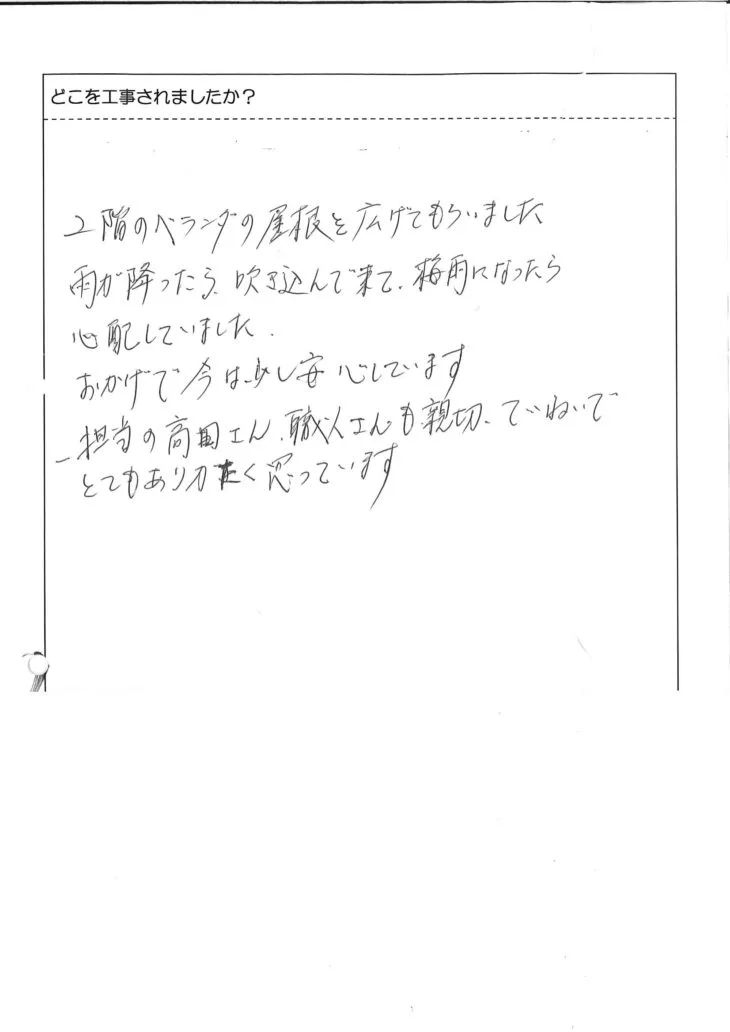 どこを工事されましたか？
2階のベランダの屋根を広げてもらいました
雨が降ったら、吹き込んで来て、梅雨になったら
心配していました.
おかげで今は少し安心しています
担当の高田さん、職人さんも親切、ていねいで
とてもありがたく思っています